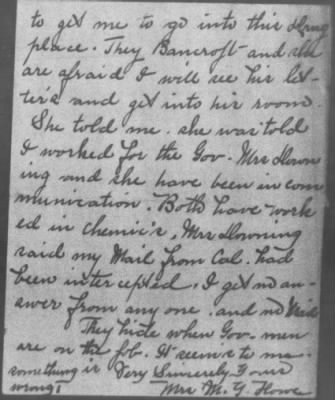 to get me to go into this Drug
place. They Bancroft and she
are afraid I will see his let-
ters and get into his room.
She told me. she was told
I worked for the Gov. Mrs Down
ing and she have been in com
munication. Both have work
ed in chemic's. Mrs Downing
said my Mail from Cal. had
been intercepted. I get no an-
swer from any one. and no
They hide when Gov. men
are on the job. It seems to me
something is Very Sincerely Yours
wrong. Mrs M. Y. Howe